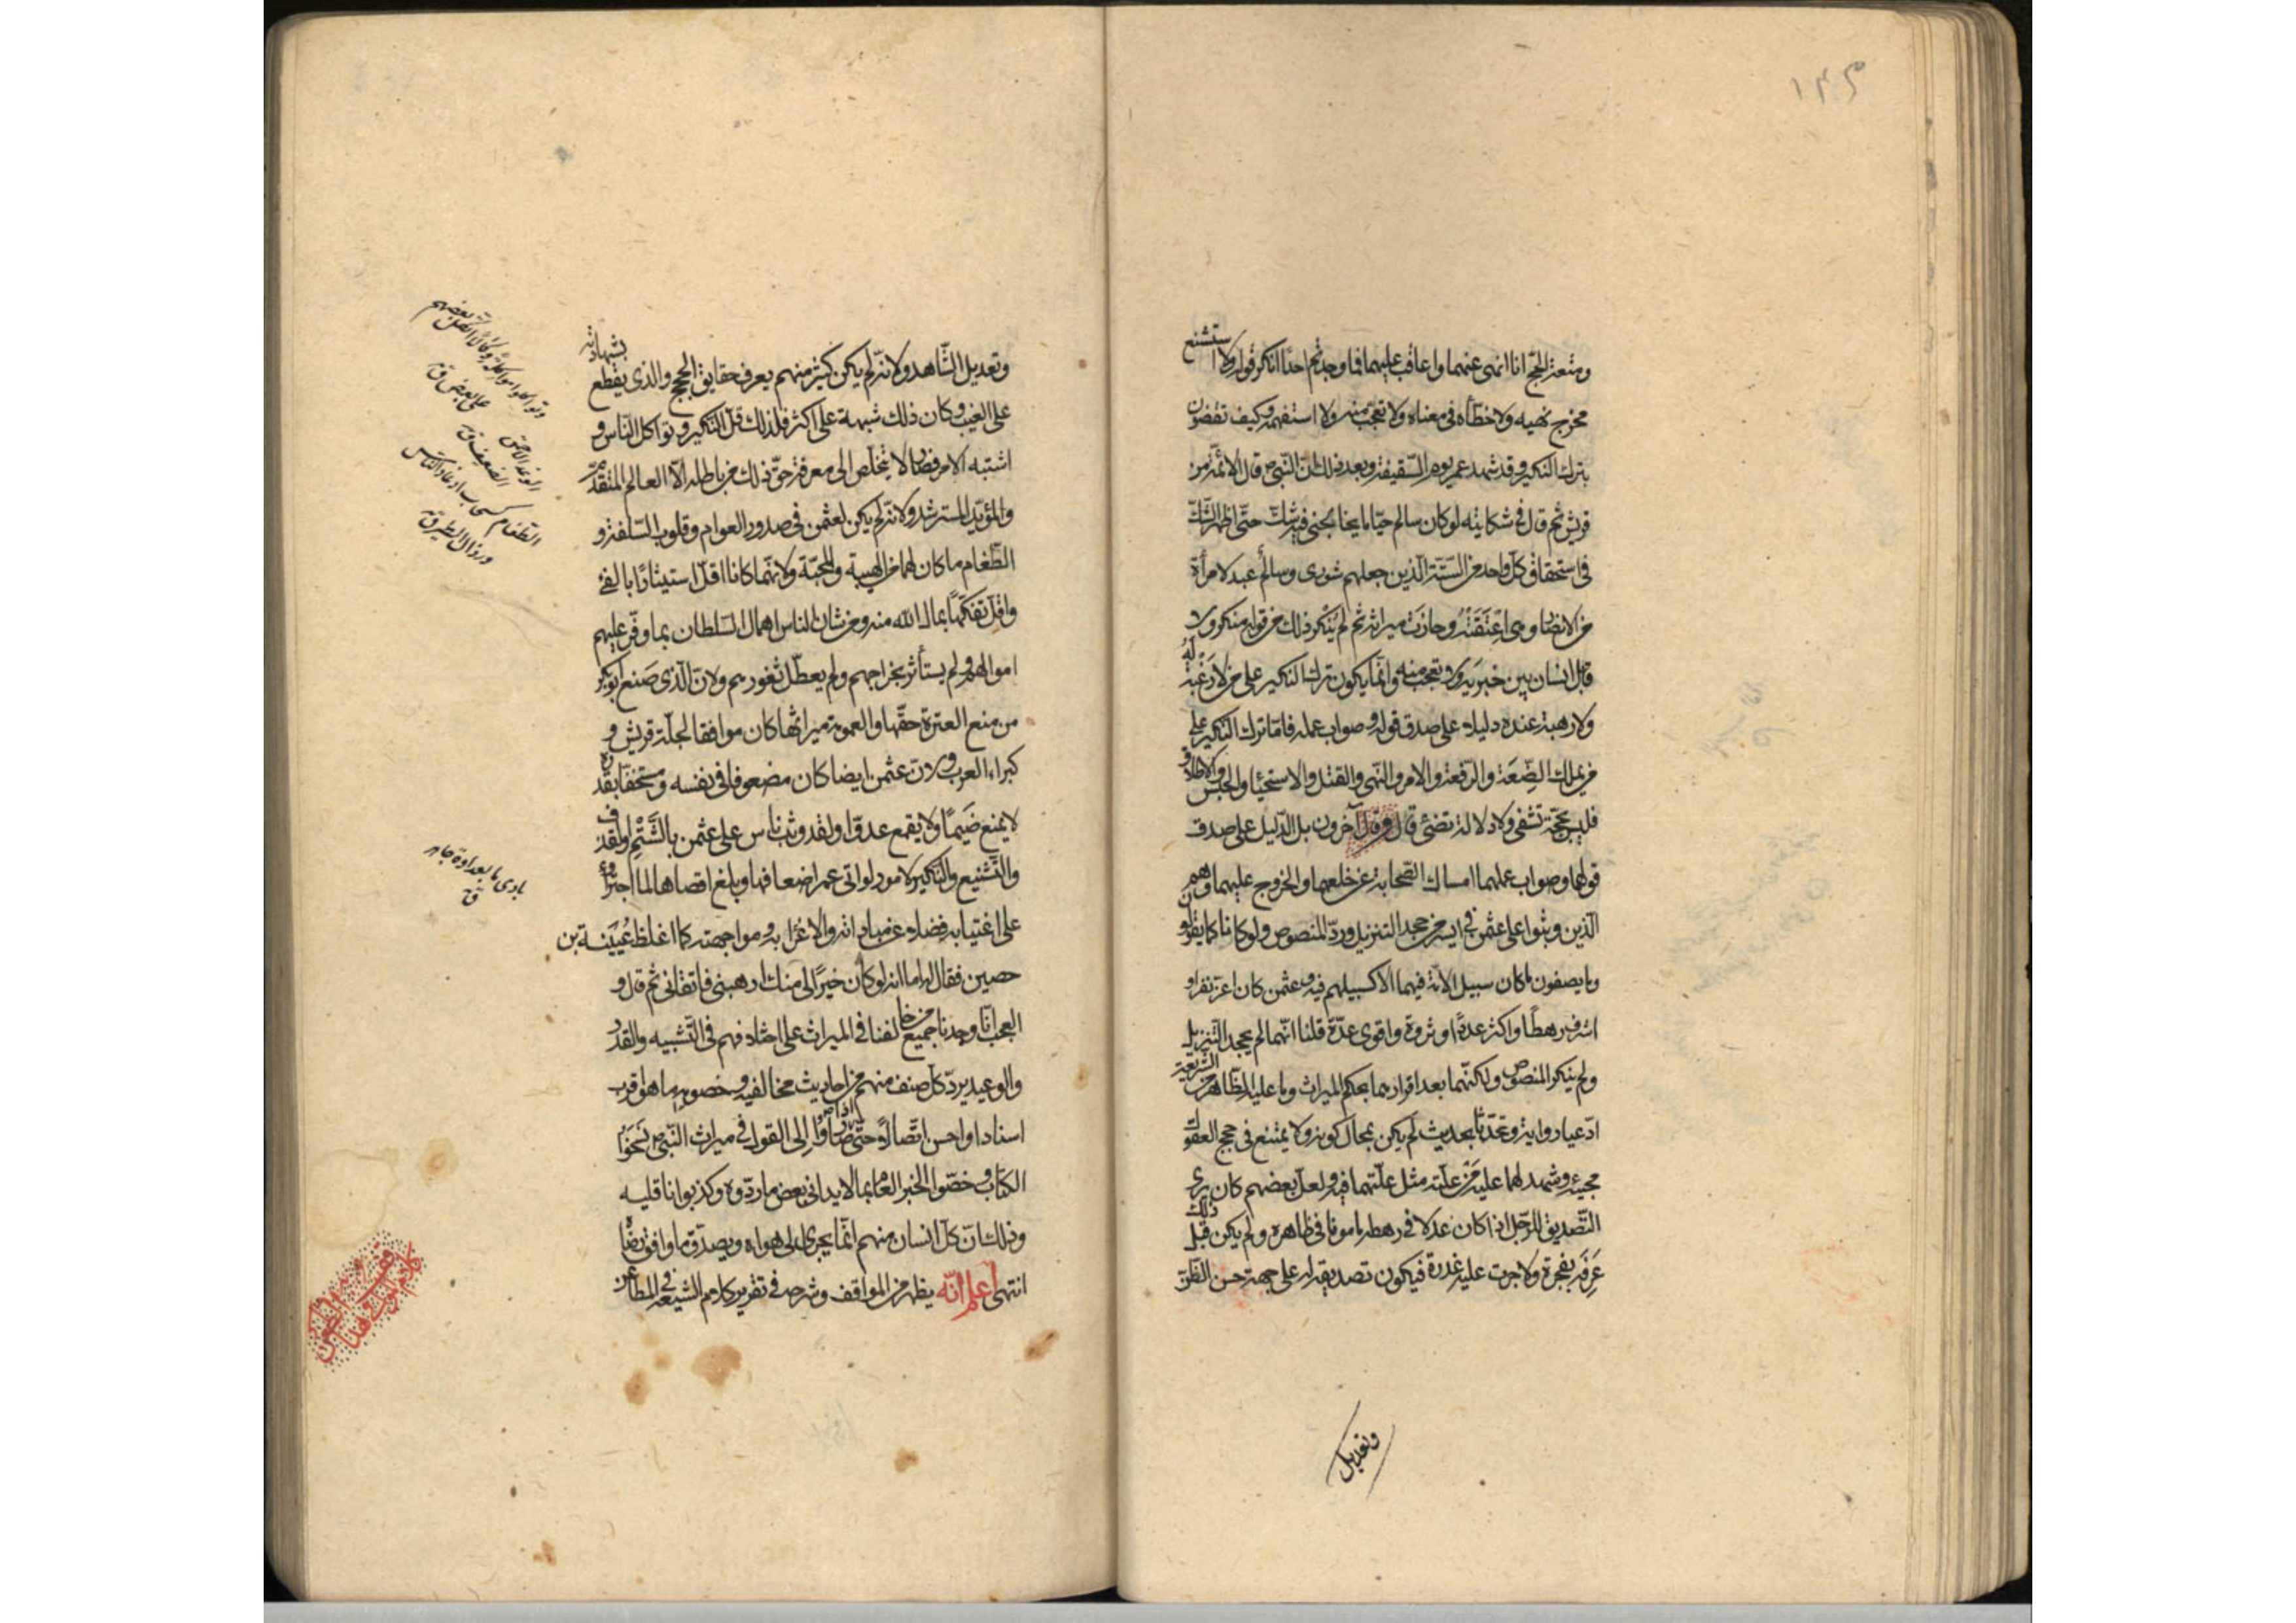 ١٤٩
ومتعة الحج انا انهى عنهما واعاقب عليهما فما وجدتم احدًا انكر قوله ولا استشنع
مخرج نهيه ولا خطأه فى معناه ولا تعجب منه ولا استفهمه وكيف تقضون
بترك النكير وقد شهد عمر يوم السقيفة وبعد ذلك ان النبى ص قال الائمة من
قريش ثم قال فى شكايته لو كان سالم حيّا ما يخالجنى فيه شك حتى اظهر الشك
فى استحقاق كل واحد من الستة الذين جعلهم شورى وسالم عبد لامرأة
من الانصار وهى اعتقته وحازت ميراثه ثم لم ينكر ذلك من قوله منكر ولا
قابل انسان بين خبريه ولا تعجب منه وانما يكون ترك النكير على من لا رغبة له
ولا رهبة عنده دليلا على صدق قوله وصواب عمله فاما ترك النكير على
من يملك الضِّعَة والرفعة والامر والنهى والقتل والاستحياء والحبس والاطلاق
فليس بحجة تشفى ولا دلالة تضئ قال وقال آخرون بل الدليل على صدق
قولهما وصواب عملهما امساك الصحابة عن خلعهما والخروج عليهما وهم
الذين وثبوا على عثمن فى ايسر من جحد التنزيل ورد المنصوص ولو كانا كما يقولون
وما يصفون ما كان سبيل الامة فيهما الا كسبيلهم فيه وعثمن كان اعز نفرا و
اشرف رهطًا واكثر عددًا وثروة واقوى عدّة قلنا انهما لم يجحدا التنزيل
ولم ينكرا المنصوص ولكنهما بعد اقرارهما بحكم الميراث وما عليه الظاهر من الشريعة
ادعيا رواية وتحدّثا بحديث لم يكن بمحال كونه ولا يمتنع فى حجج العقول
مجيئه وشهد لهما عليه مَن علته مثل علتهما فيه ولعل بعضهم كان يرى
التصديق للرجل اذا كان عدلا فى رهطه مامونا فى ظاهره ولم يكن قبل ذلك
عَرَفَه بفجرة ولا جرت عليه غدرة فيكون تصديقه له على جهة حسن الظن
وتعديل
وتعديل الشاهد ولانه لم يكن كثير منهم يعرف حقايق الحجج والذى يقطع بشهادته
على الغيب وكان ذلك شبهة على اكثر فلذلك قل النكير وتواكل الناس و
اشتبه الامر فصار لا يتخلص الى معرفة حق ذلك من باطله الّا العالم المتقدّم
والمؤيد المسترشد ولانه لم يكن لعثمن فى صدور العوام وقلوب السفلة و
الطّغام ما كان لهما من الهيبة والمحبّة ولانهما كانا اقل استيثارًا بالفئ
واقل تفكّهًا بمال الله منه ومن شان الناس اهمال السلطان بما وفر عليهم
اموالهم ولم يستأثر بخراجهم ولم يعطل ثغورهم ولان الذى صنع ابوبكر
من منع العترة حقها والعمومة ميراثها كان موافقا لجلة قريش و
كبراء العرب ولان عثمن ايضا كان مضعوفا فى نفسه ومستخفا بقدره
لا يمنع ضَيمًا ولا يقمع عدوّا ولقد وثب ناس على عثمن بالشَّتْمِ والقذف
والتشنيع والنكير لامور لو اتى عمر اضعافها وبلغ اقصاها لما اجترؤا
على اغتيابه فضلا عن مباداته والاغراء به ومواجهته كما اغلظ عُيَينة بن
حصين فقال له اما انه لو كان خيرًا لى منك ارهبنى فاتقانى ثم قال و
العجب انا وجدنا جميع من خالفنا فى الميراث على اختلافهم فى التشبيه والقدر
والوعيد يرد كل صنف منهم من احاديث مخالفيه وخصومه ما هو اقرب
اسنادا واحسن اتصالا حتى اذا صاروا الى القول فى ميراث النبى ص نسخوا
الكتاب وخصّوا الخبر العام بما لا يدانى بعض ما ردّوه وكذبوا ناقليه
وذلك ان كل انسان منهم انما يجرى الى هواه ويصدق ما وافق رضاه
انتهى اعلم انّه يظهر من المواقف وشرحه فى تقرير كلام الشيعة فى المطاعن
الطغام كسحاب اوغاد الناس
ورذال الطير ق
بادى بالعداوة جاهر
ق